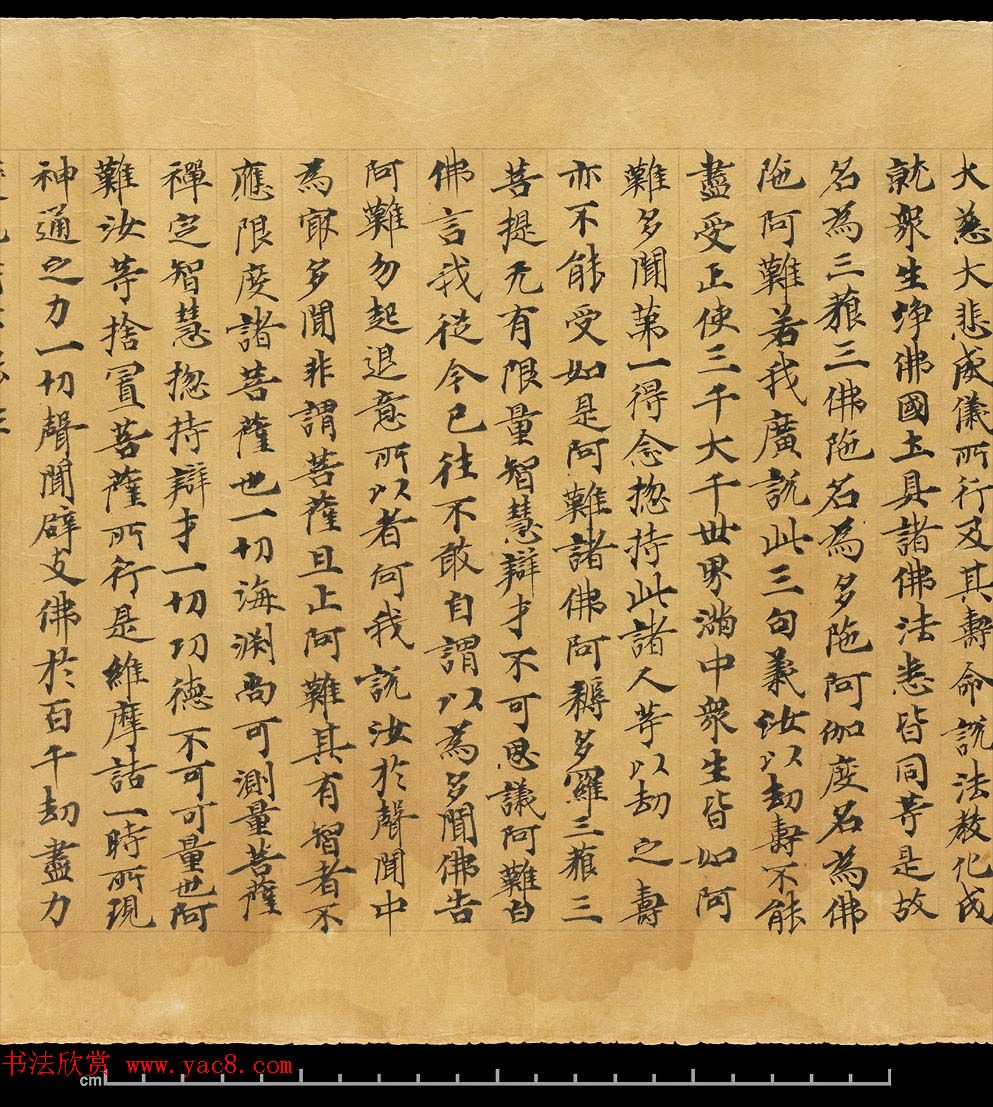 大慈大悲威儀所行及其壽命說法教化成
就衆生淨佛國土具諸佛法悉皆同等是故
名為三藐三佛陁名為多陁阿伽度名為佛
陁阿難若我廣說此三句義汝以劫壽不能
盡受正使三千大千世界滿中衆生皆如阿
難多聞第一得念揔持此諸人等以劫之壽
亦不能受如是阿難諸佛阿耨多羅三藐三
菩提无有限量智慧辯才不可思議阿難白
佛言我從今已往不敢自謂以為多聞佛告
阿難勿起退意所以者何我說汝於聲聞中
為寂多聞非謂菩薩且止阿難其有智者不
應限度諸菩薩也一切海渊尚可測量菩薩
禪定智慧揔持辯才一切功德不可可量也阿
難汝等捨置菩薩所行是維摩詰一時所現
神通之力一切聲聞辟支佛於百千劫盡力
书法欣赏 www.yac8.com
cm